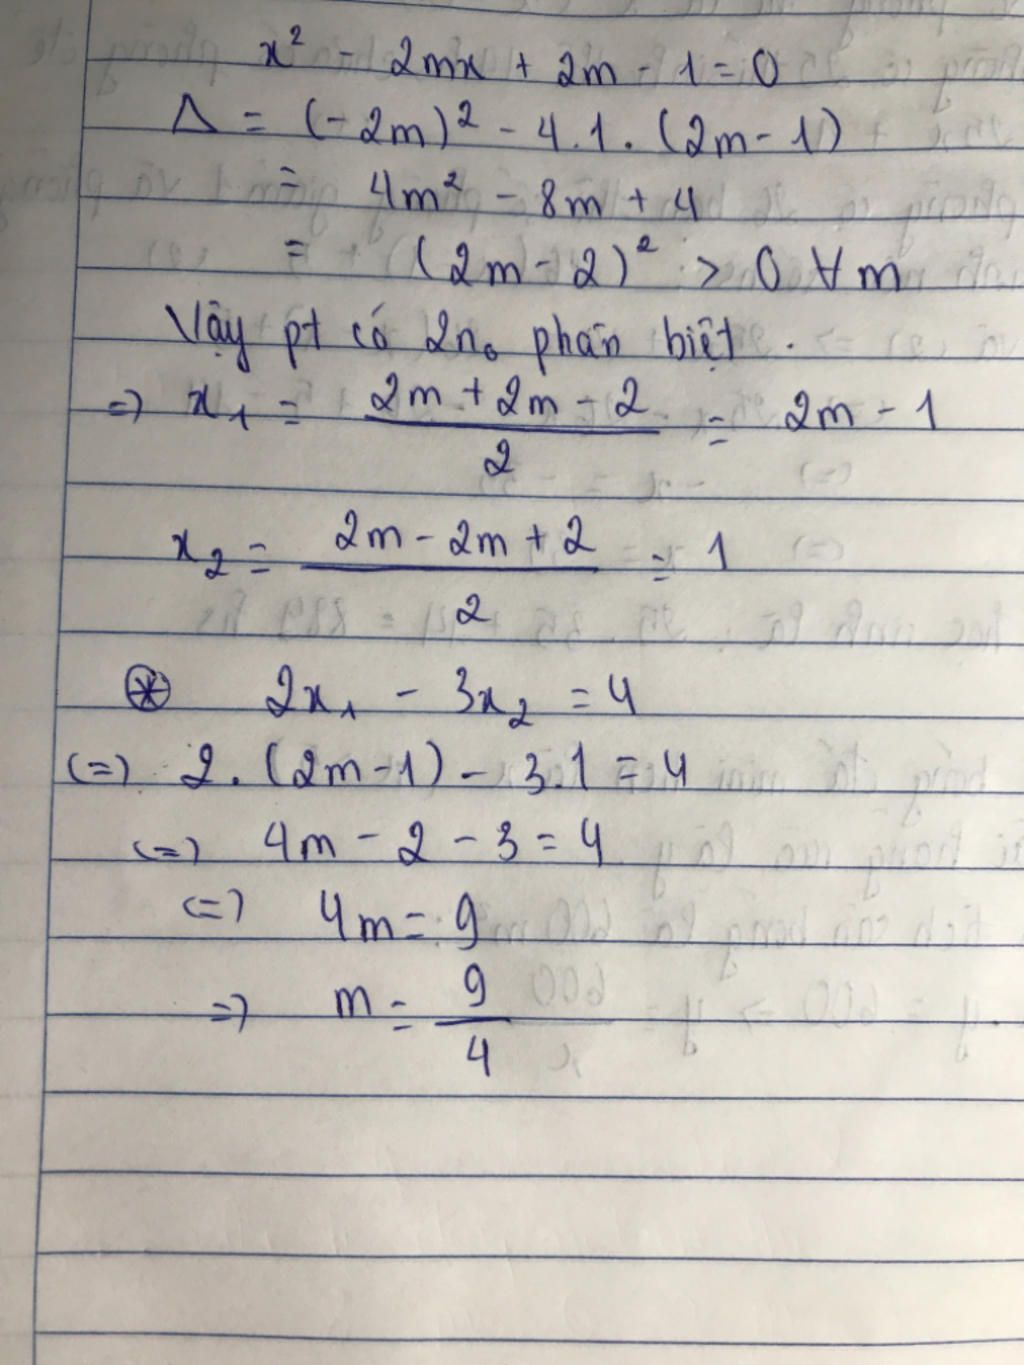 x² - 2mx + 2m - 1 = 0
Δ = (-2m)² - 4.1.(2m - 1)
= 4m² - 8m + 4
= (2m - 2)² > 0 ∀m
Vậy pt có 2n₀ phân biệt.
=> x₁ = (2m + 2m - 2)/2 = 2m - 1
x₂ = (2m - 2m + 2)/2 = 1
⊛ 2x₁ - 3x₂ = 4
(=) 2.(2m-1) - 3.1 = 4
(=) 4m - 2 - 3 = 4
(=) 4m = 9
=> m = 9/4